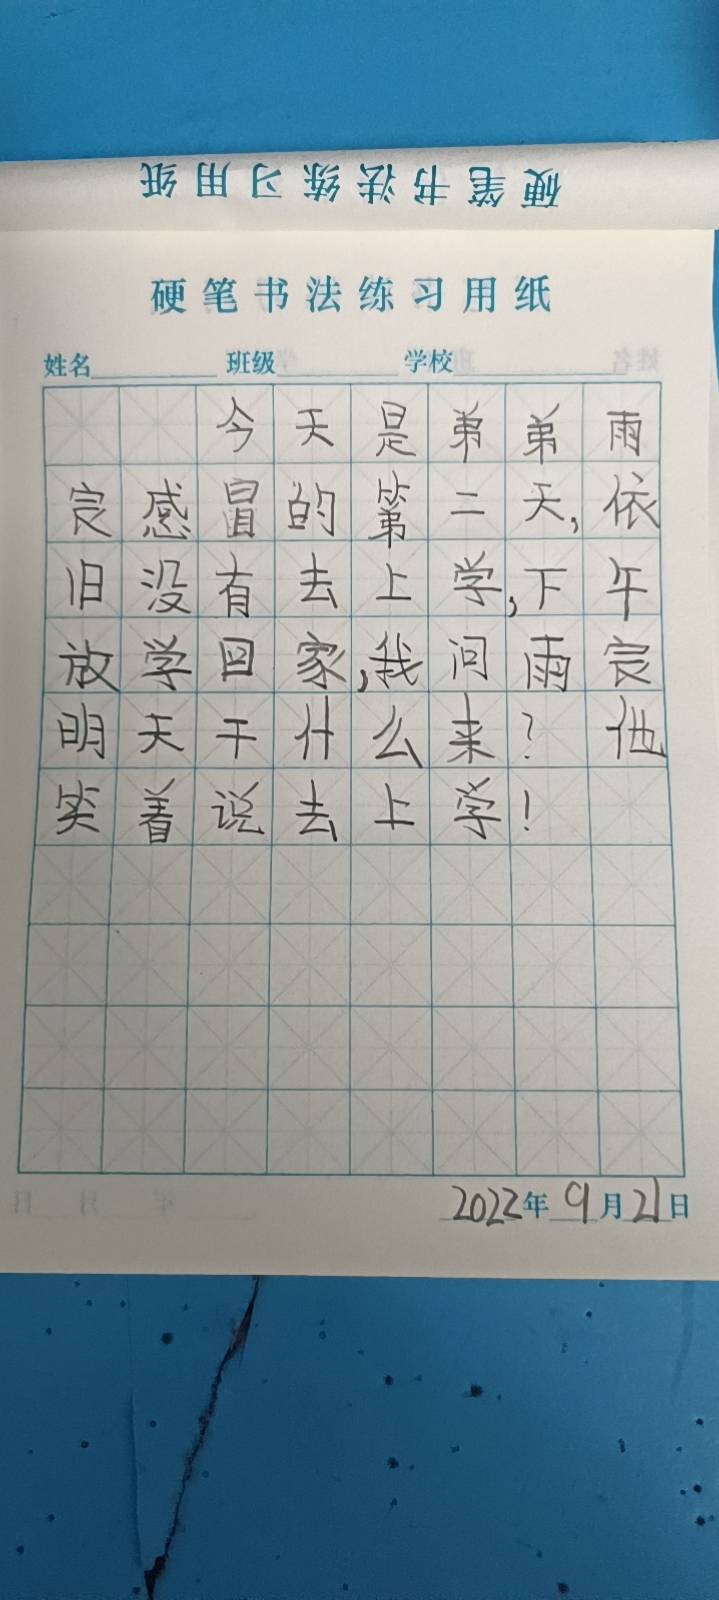 硬笔书法练习用纸
硬笔书法练习用纸
姓名 班级 学校
今天是弟弟雨
宸感冒的第二天,依
旧没有去上学,下午
放学回家,我问雨宸
明天干什么来?他
笑着说去上学!
2022年9月21日